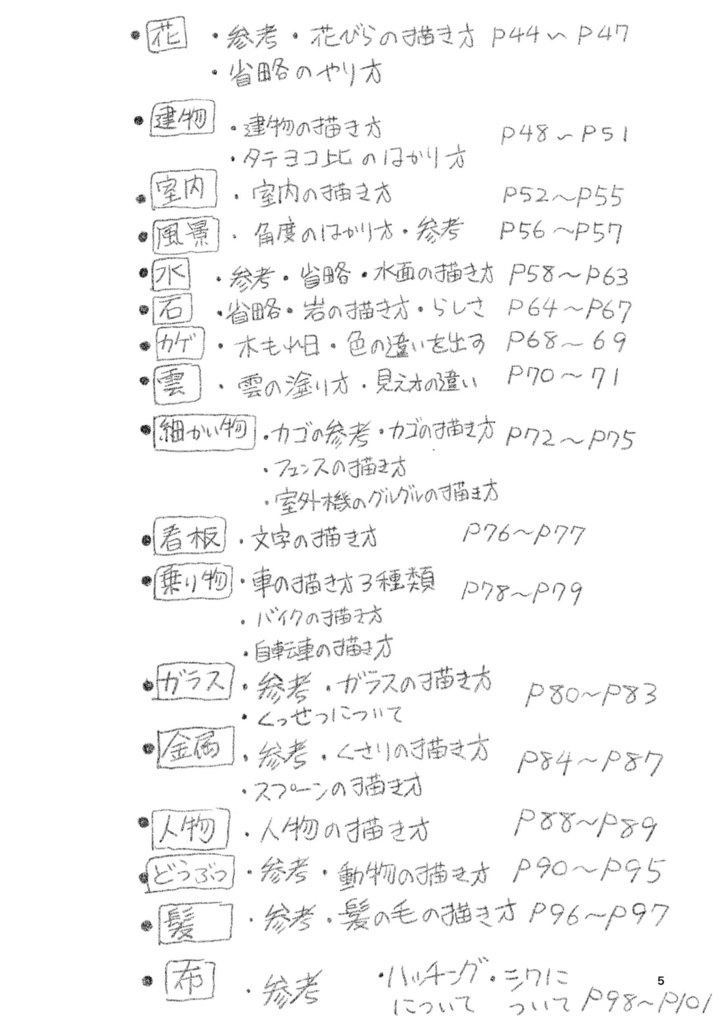 • 花 ・参考・花びらの描き方 P44〜P47
・省略のやり方
• 建物 ・建物の描き方 P48〜P51
・タテヨコ比のはかり方
• 室内 ・室内の描き方 P52〜P55
• 風景 ・角度のはかり方・参考 P56〜P57
• 水 ・参考・省略・水面の描き方 P58〜P63
• 石 ・省略・岩の描き方・らしさ P64〜P67
• カゲ ・木もれ日・色の違いを出す P68〜69
• 雲 ・雲の塗り方・見え方の違い P70〜71
• 細かい物 ・カゴの参考・カゴの描き方 P72〜P75
・フェンスの描き方
・室外機のグルグルの描き方
• 看板 ・文字の描き方 P76〜P77
• 乗り物 ・車の描き方3種類 P78〜P79
・バイクの描き方
・自転車の描き方
• ガラス ・参考・ガラスの描き方 P80〜P83
・くっせつについて
• 金属 ・参考・くさりの描き方 P84〜P87
・スプーンの描き方
• 人物 ・人物の描き方 P88〜P89
• どうぶつ ・参考・動物の描き方 P90〜P95
• 髪 ・参考・髪の毛の描き方 P96〜P97
• 布 ・参考 ・ハッチング・シワに
について ついて P98〜P101
5